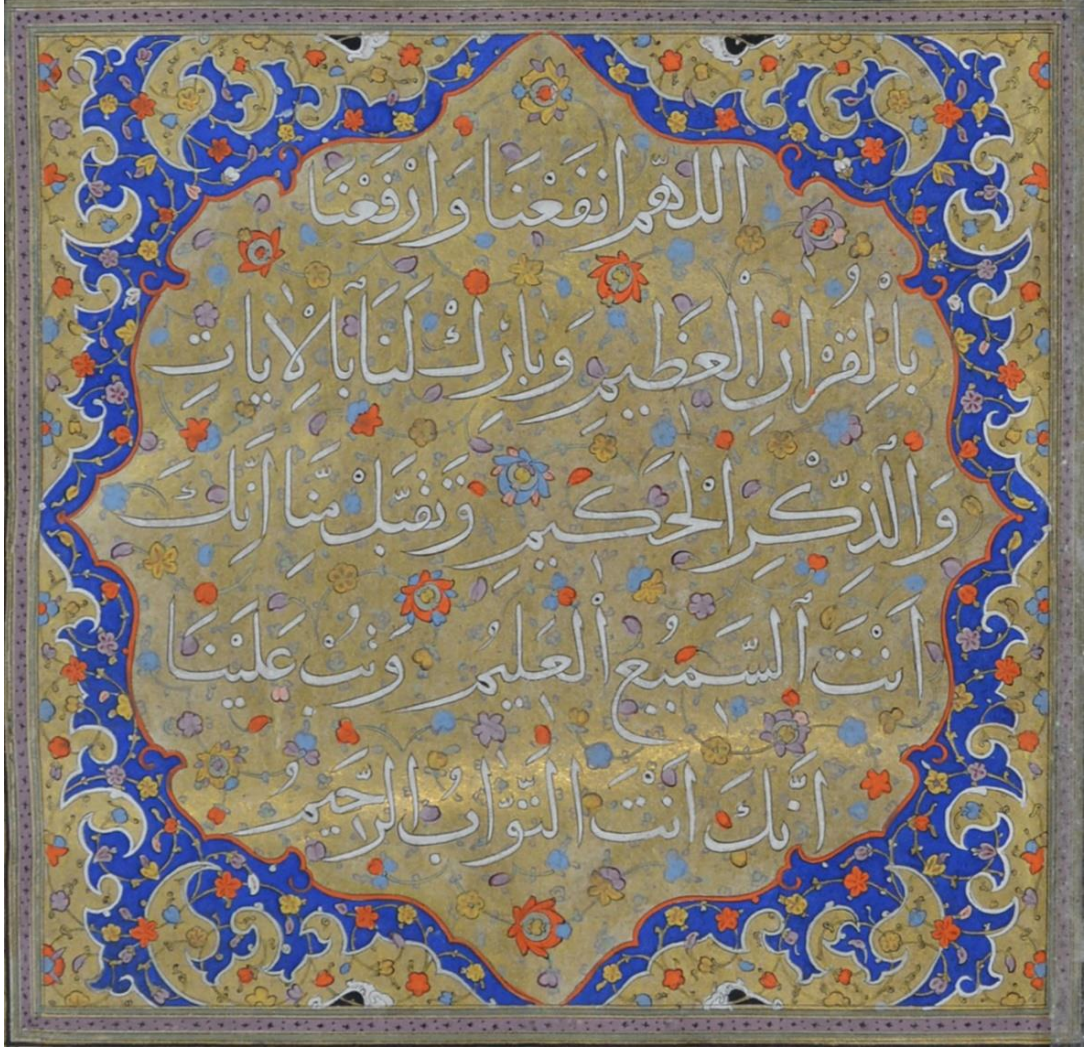 اللهم انفعنا وارفعنا
بالقران العظيم وبارك لنا بالايات
والذكر الحكيم وتقبل منا انك
انت السميع العليم وتب علينا
انك انت التواب الرحيم